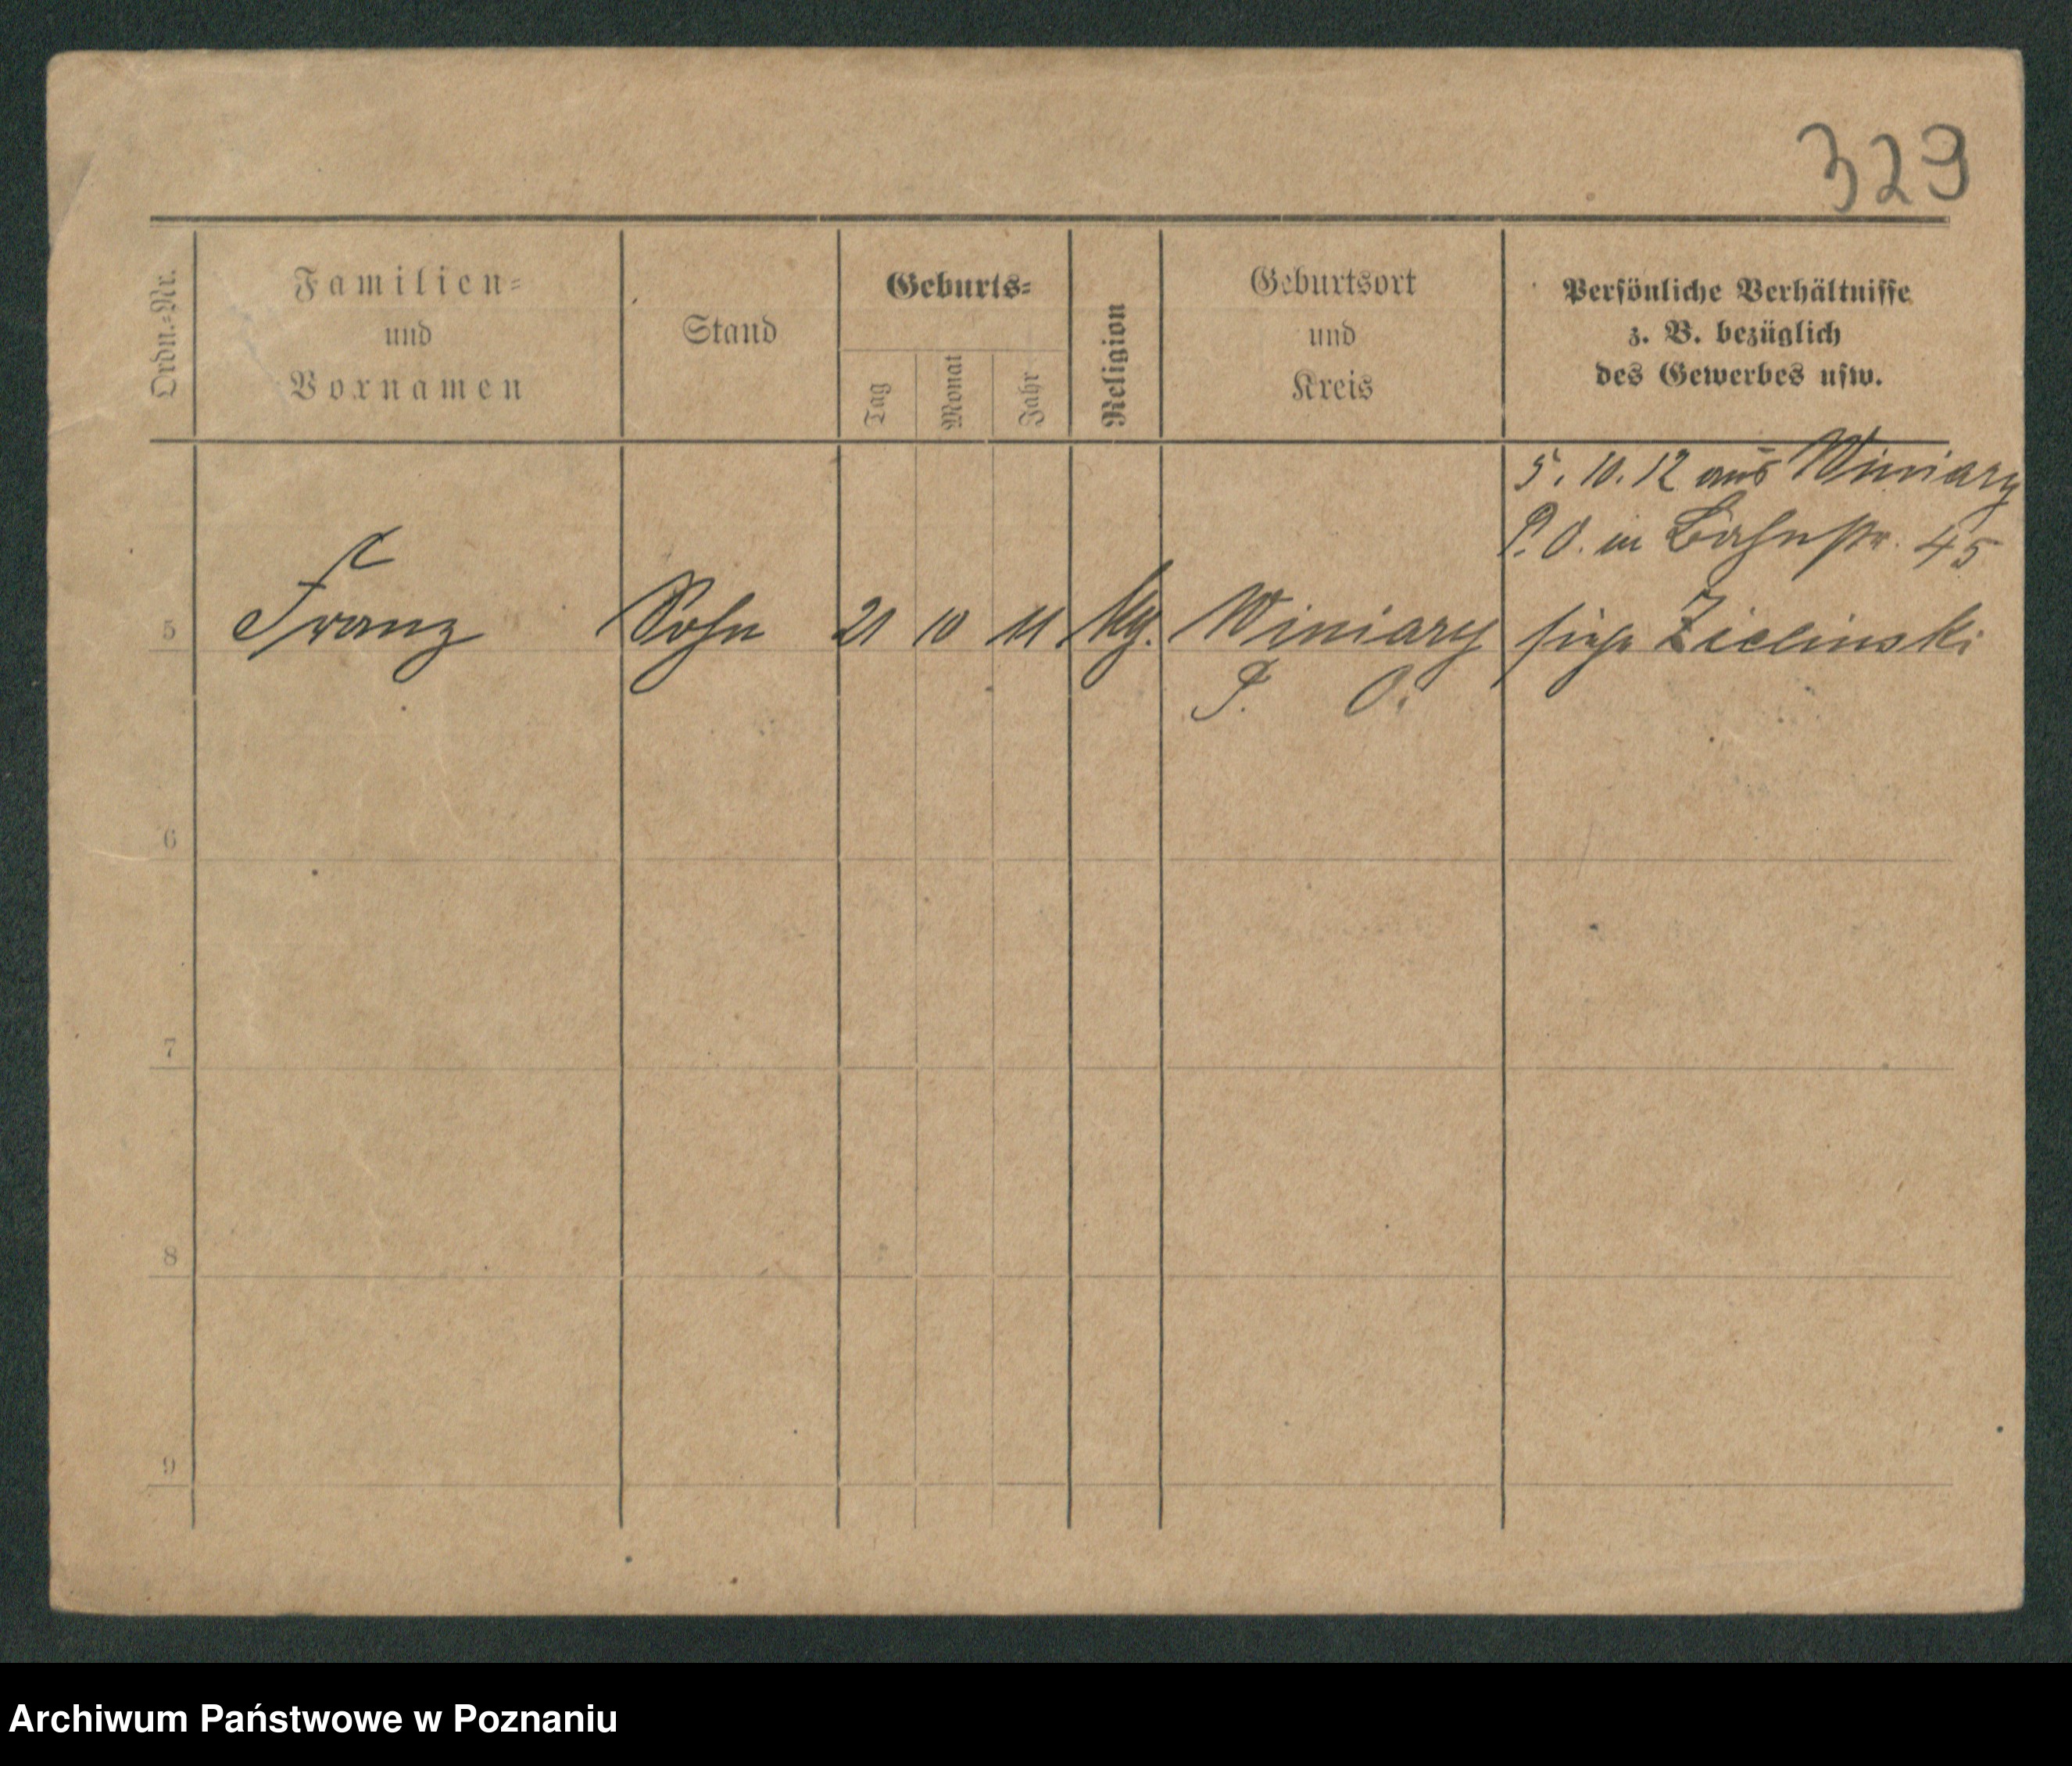 329
Ordn.-Nr.
Familien-
und
Vornamen
Stand
Geburts-
Tag
Monat
Jahr
Religion
Geburtsort
und
Kreis
Persönliche Verhältnisse
z. B. bezüglich
des Gewerbes usw.
5. 10. 12 aus Winiary
P. O. in Bahnstr. 45
5 Franz Sohn 21 10 11 kg. Winiary siehe Zielinski
P. O.
6
7
8
9
Archiwum Państwowe w Poznaniu